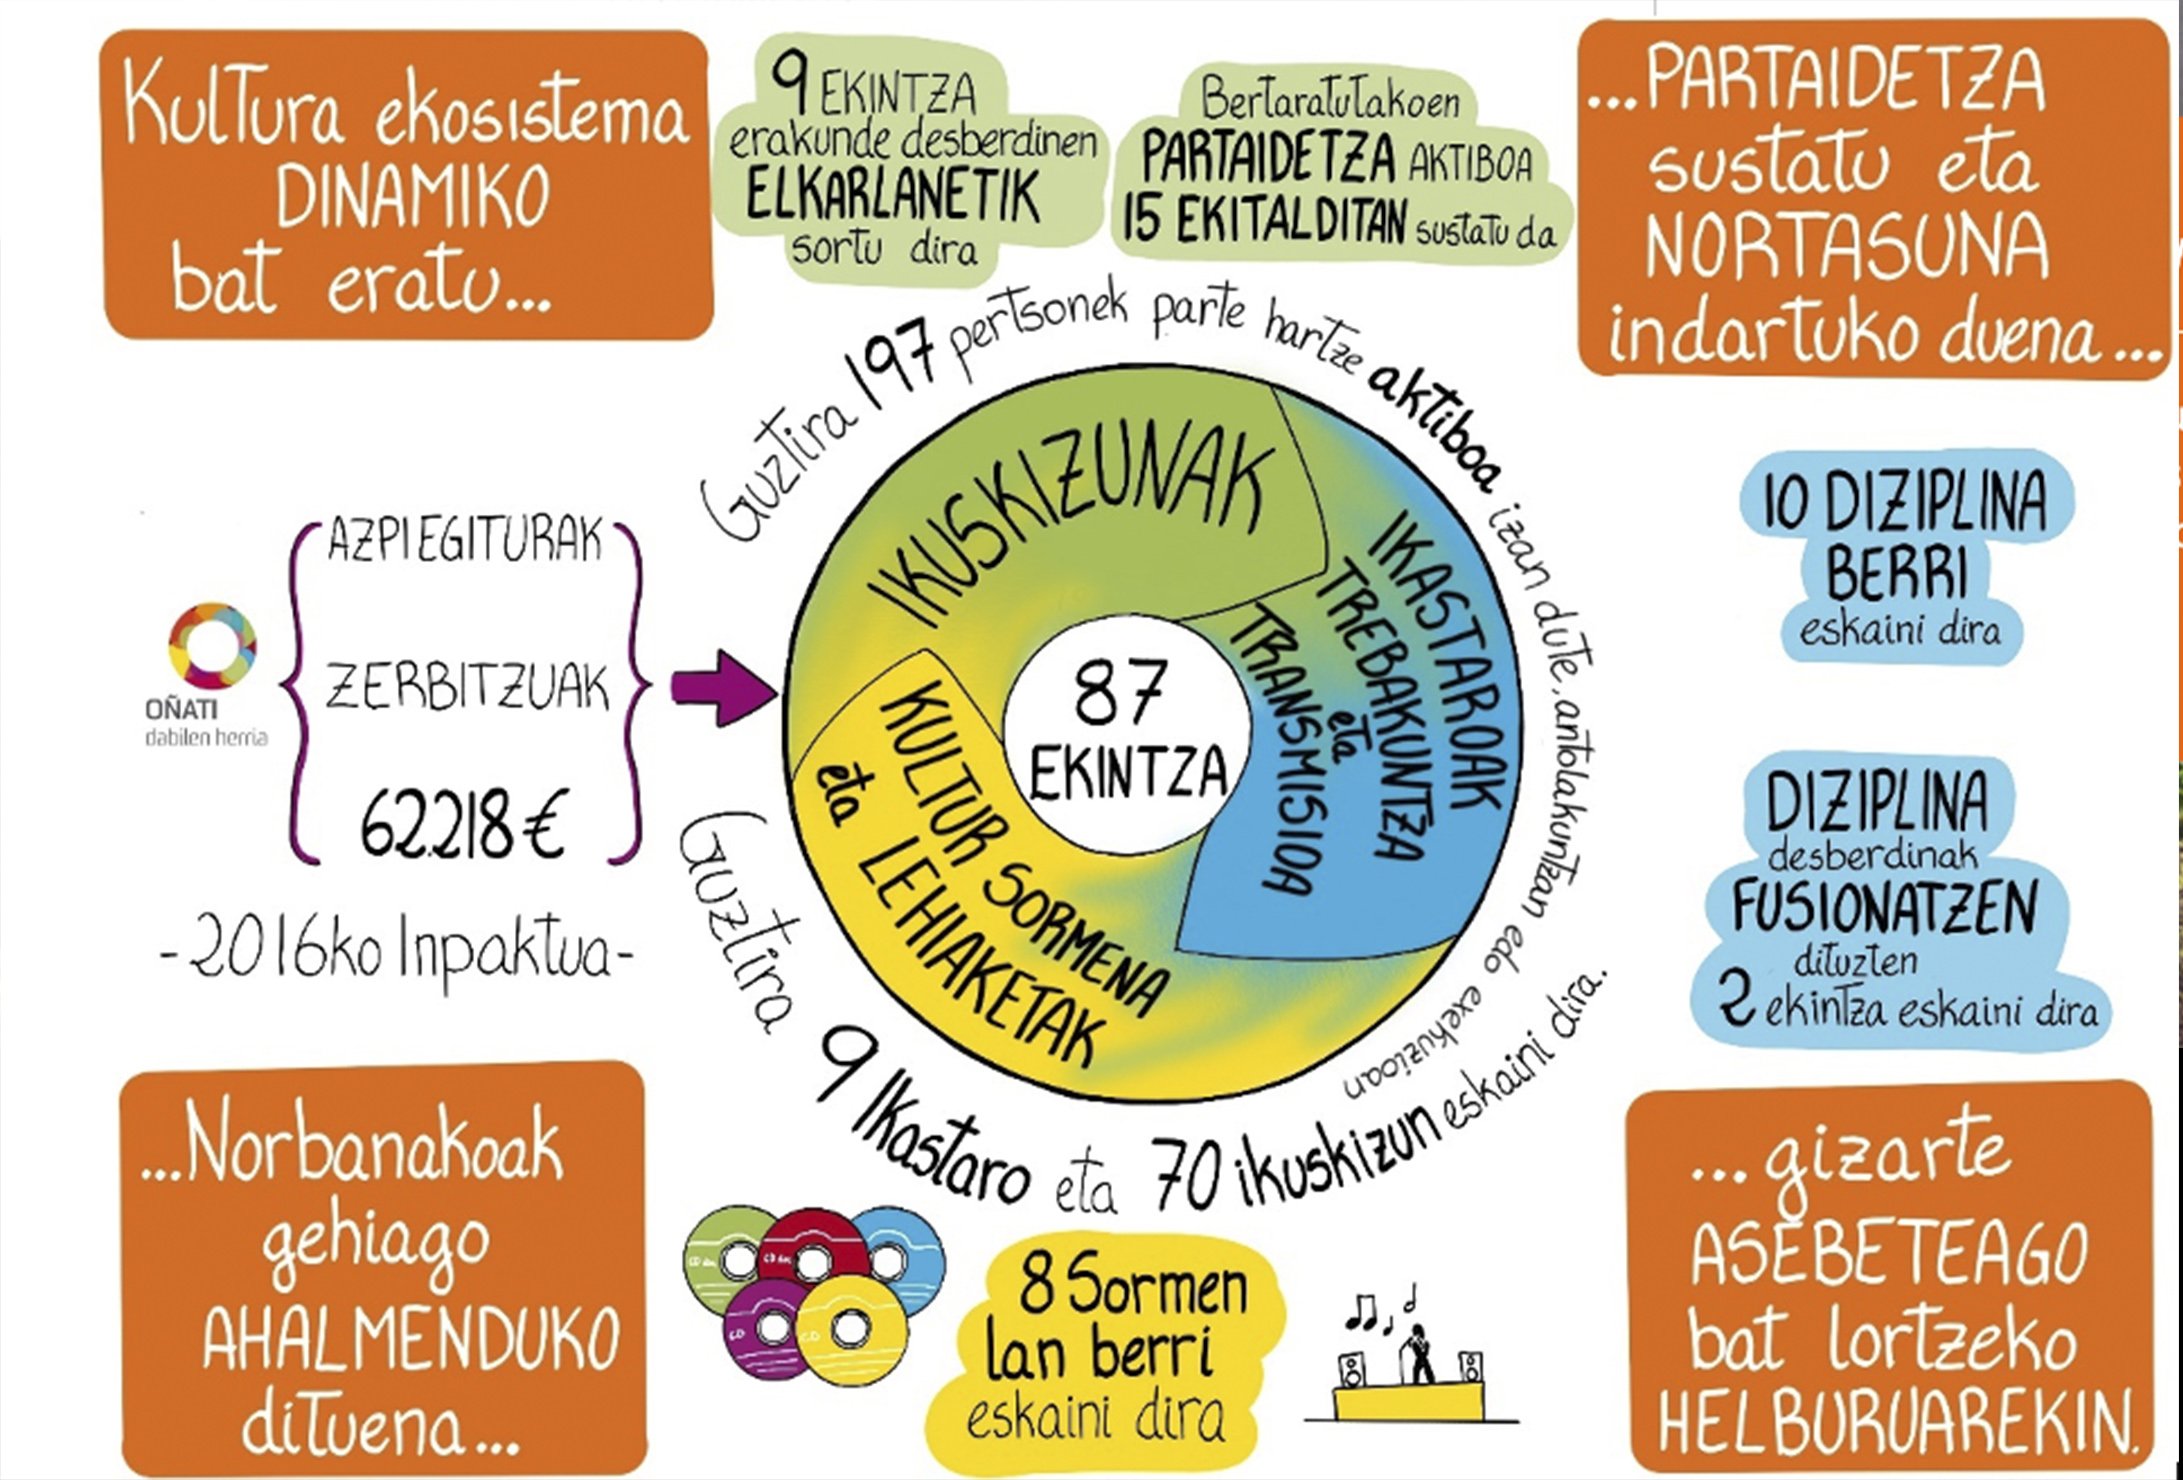 Kultura ekosistema
DINAMIKO
bat eratu...
9 EKINTZA
erakunde desberdinen
ELKARLANETIK
sortu dira
Bertaratutakoen
PARTAIDETZA AKTIBOA
15 EKITALDITAN sustatu da
...PARTAIDETZA
sustatu eta
NORTASUNA
indartuko duena...
Guztira 197 pertsonek parte hartze aktiboa izan dute, antolakuntzan edo exekuzioan
IKUSKIZUNAK
IKASTAROAK
TREBAKUNTZA
eta
TRANSMISIOA
KULTUR SORMENA
eta LEHIAKETAK
87
EKINTZA
AZPIEGITURAK
ZERBITZUAK
62.218€
OÑATI
dabilen herria
-2016ko Inpaktua-
10 DIZIPLINA
BERRI
eskaini dira
DIZIPLINA
desberdinak
FUSIONATZEN
dituzten
2 ekintza eskaini dira
Guztira 9 Ikastaro eta 70 ikuskizun eskaini dira.
...Norbanakoak
gehiago
AHALMENDUKO
dituena...
CD
CD
CD
CD
8 Sormen
lan berri
eskaini dira
...gizarte
ASEBETEAGO
bat lortzeko
HELBURUAREKIN.